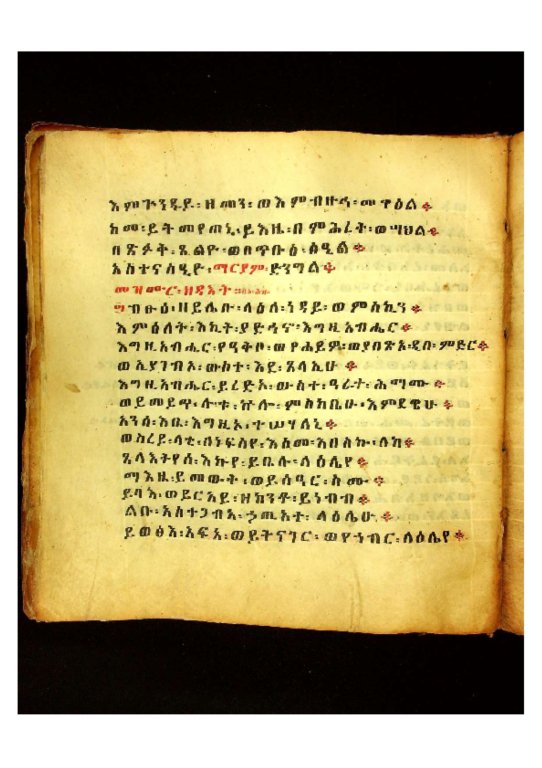 እምጕንዱይ፡ዘመን፡ወእምብዙኅ፡መዋዕል።
ከመ፡ይትመየጠኒ፡ይእዜ፡በምሕረት፡ወሣህል።
በጽፉት፡ጼልዮ፡ወበጥቡዕ፡
አስተናስዊዮ፡ማርያም፡ድንግል።
መዝሙር፡ዘዳእት፡
ብፁዕ፡ዘይሌቡ፡ላዕለ፡ነዳይ፡ወምስኪን።
እምዕለት፡እኪት፡ያድኅኖ፡እግዚአብሔር።
እግዚአብሔር፡የዓቅቦ፡ወየሐይዎ፡ወያበጽዖ፡ዲበ፡ምድር።
ወኢያገብኦ፡ውስተ፡እደ፡ጸላኢሁ።
እግዚአብሔር፡ይረድኦ፡ውስተ፡ዓራተ፡ሕማሙ።
ወይመይጥ፡ሎቱ፡ኵሎ፡ምስካቢሁ፡እምደዌሁ።
አንሰ፡እቤ፡እግዚኦ፡ተሠሃለኒ።
ወስረይ፡ላቲ፡ለነፍስየ፡እስመ፡አበስኩ፡ለከ።
ጸላእትየሰ፡እኩየ፡ይቤሉ፡ላዕሌየ።
ማእዜ፡ይመውት፡ወይሰዓር፡ስሙ።
ይባእ፡ወይርአይ፡ዘከንቶ፡ይነብብ።
ልቡ፡አስተጋብአ፡ኃጢአተ፡ላዕሌሁ።
ይወፅእ፡አፍአ፡ወይትናገር፡ወየኀብር፡ላዕሌየ።